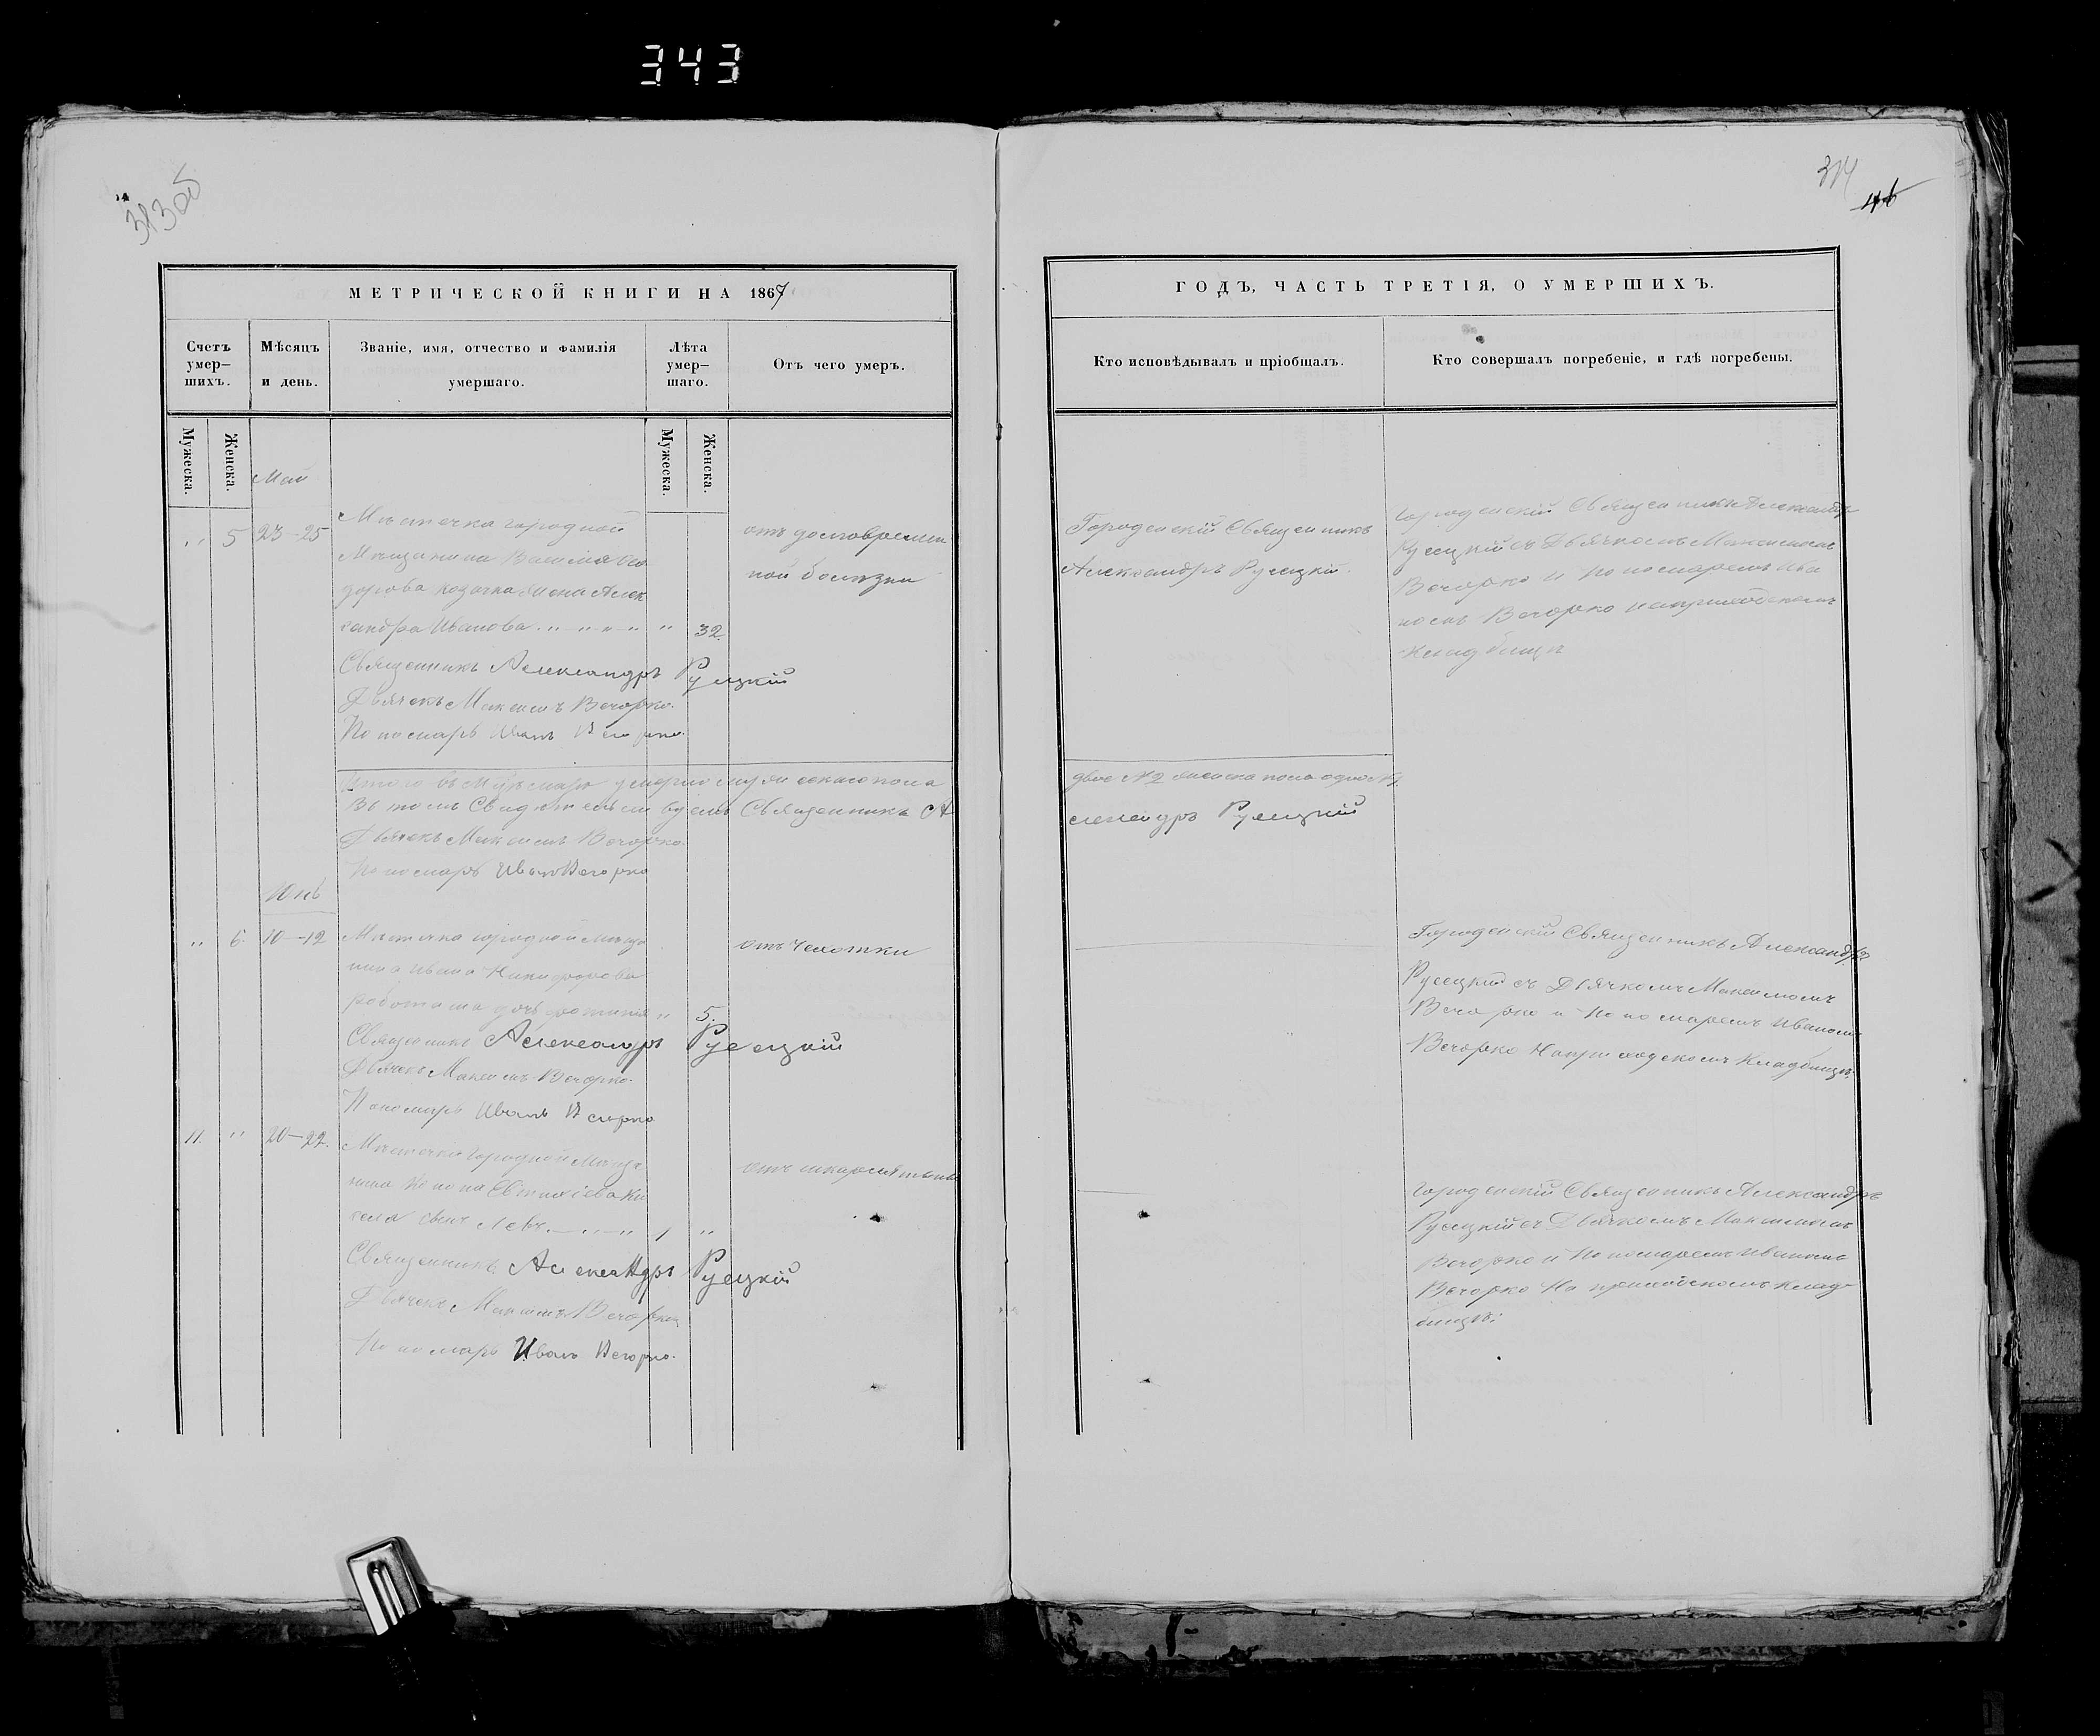 343
313 об
314
46
МЕТРИЧЕСКОЙ КНИГИ НА 1867
Счетъ умер-шихъ.
Мѣсяцъ и день.
Званіе, имя, отчество и фамилія умершаго.
Лѣта умер-шаго.
Отъ чего умеръ.
Мужеска.
Женска.
Мужеска.
Женска.
Май
" 5 23-25
Мѣстечка городной
Мѣщанина Василія Ѳео
дорова Козачка жена Алек
сандра Иванова " " " " " 32.
отъ долговремен
ной болѣзни
Священникъ Александръ Русецкій
Дьячекъ Максимъ Вечорко.
Пономарь Иванъ Вечорко.
Итого въ Маѣ умерло мужескаго пола
Въ томъ Свидѣтельствуемъ Священникъ А
Дьячекъ Максимъ Вечорко.
Пономарь Иванъ Вечорко
Юнь
" 6. 10-12
Мѣстечка городной мѣща
нина Ивана Никифорова
дочь " 5.
отъ Чахотки
Священникъ Александръ Русецкій
Дьячекъ Максимъ Вечорко.
Пономарь Иванъ Вечорко
11. " 20-22.
Мѣстечка Городной Мѣща
нина Конона Евтихіева Ки
села сынъ Левъ. " " 1 "
отъ шкарлятины
Священникъ Александръ Русецкій
Дьячекъ Максимъ Вечорко
Пономарь Иванъ Вечорко.
ГОДЪ, ЧАСТЬ ТРЕТІЯ, О УМЕРШИХЪ.
Кто исповѣдывалъ и пріобщалъ.
Кто совершалъ погребеніе, и гдѣ погребены.
Городенскій Священникъ
Александръ Русецкій.
Городенскій Священникъ Александръ
Русецкій съ Дьячкомъ Максимомъ
Вечорко и Пономаремъ Ива
номъ Вечорко на приходскомъ
кладбищѣ
двое №2 женска пола одно №1
лександръ Русецкій
Городенскій Священникъ Александръ
Русецкій съ Дьячкомъ Максимомъ
Вечорко и Пономаремъ Иваномъ
Вечорко На приходскомъ Кладбищѣ.
Городенскій Священникъ Александръ
Русецкій съ Дьячкомъ Максимомъ
Вечорко и Пономаремъ Иваномъ
Вечорко На приходскомъ клад-
бищѣ.